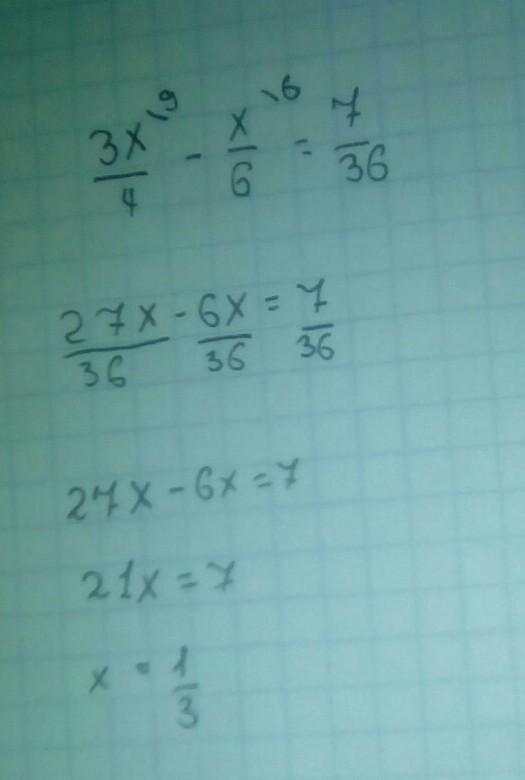 3x\9/4 - x\6/6 = 7/36
27x/36 - 6x/36 = 7/36
27x - 6x = 7
21x = 7
x = 1/3